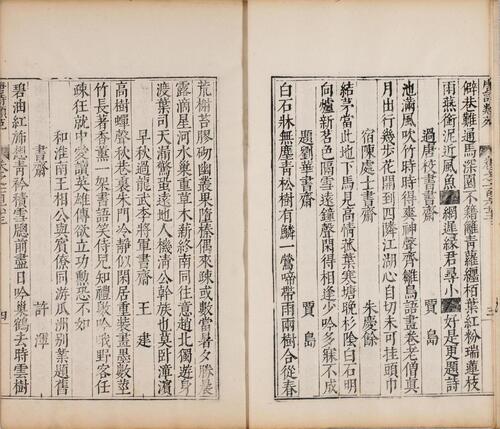 僻巷難通馬深園不藉籬青蘿纏柏葉紅粉墮蓮枝
雨燕銜泥近風魚網遲緣君尋小好是更題詩
過唐校書書齋 賈島
池滿風吹竹時時得爽神聲齊雛鳥語畫卷老僧真
月出行幾步花開到四隣江湖心自切未可挂頭巾
宿陳處士書齋 朱慶餘
結茅當此地下馬見高情菰葉寒塘晚杉陰白石明
向爐新茗色隔雪遠鐘聲閑得相逢少吟多寐不成
題劉華書齋 賈島
白石牀無塵青松樹有鱗一鶯啼帶雨兩樹合從春
荒榭苔膠砌幽叢果墮榛偶來疎或數當暑夕勝晨
露滴星河水巢重草木薪終南同往意趙北獨遊身
渡葉司天漏驚蛩遠地人機清公幹族也莫臥漳濱
早秋過龍武李將軍書齋 王建
高樹蟬聲秋巷裏朱門冷靜似閑居重裝畫墨數莖
竹長著香薰一架書語笑侍兒知禮數吟哦野客任
疎狂就中愛讀英雄傳欲立功勳恐不如
和淮南王相公與賓僚同游瓜洲別業題舊
書齋 許渾
碧油紅斾想青衿積雪窻前盡日吟巢鶴去時雲樹